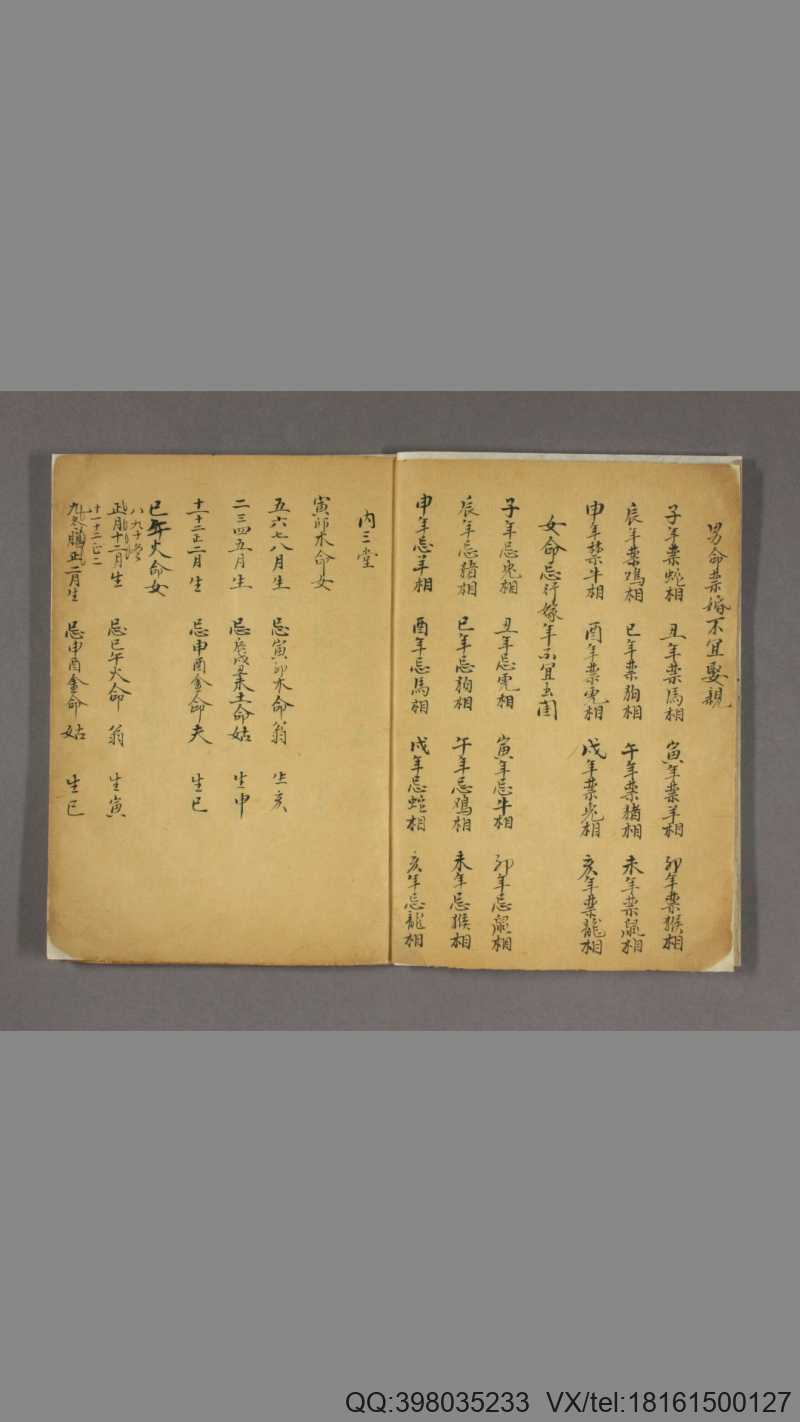 男命禁婚不宜娶親
子年禁蛇相 丑年禁馬相 寅年禁羊相 卯年禁猴相
辰年禁鴻相 巳年禁狗相 午年禁猪相 未年禁鼠相
申年禁牛相 酉年禁虎相 戌年禁兔相 亥年禁龍相
女命忌行嫁年不宜出閨
子年忌兔相 丑年忌虎相 寅年忌牛相 卯年忌鼠相
辰年忌猪相 巳年忌狗相 午年忌鴻相 未年忌猴相
申年忌羊相 酉年忌馬相 戌年忌蛇相 亥年忌龍相
内三堂
寅卯木命女
五六七八月生 忌寅卯木命翁 生亥
二三四五月生 忌辰戌丑未土命姑 生申
十一十二正二月生 忌申酉金命夫 生巳
巳午火命女
八九十
正月十二月生 忌巳午火命翁 生寅
十一十二正二
九 臘正二月生 忌申酉金命姑 生巳
QQ:398035233 VX/tel:18161500127